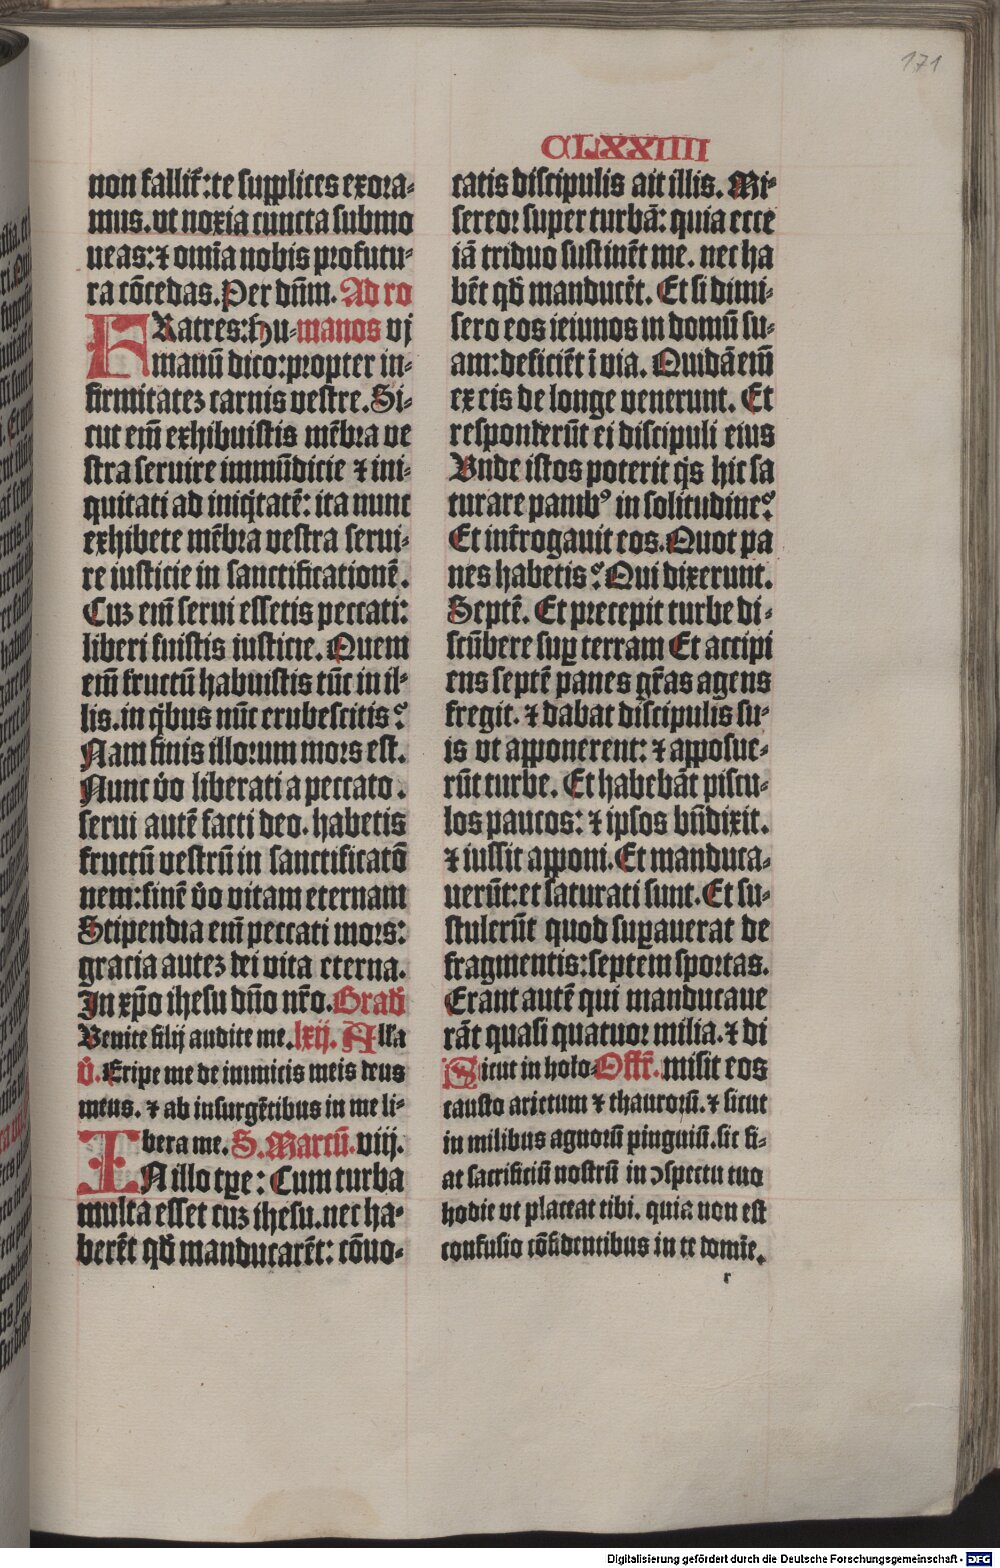 171
CLXXIIII
non fallit᷑:te supplices exora-
mus. vt noxia cuncta submo
ueas:⁊ om̄ia nobis profutu-
ra cōcedas. Per dn̄m. Ad ro
FRatres:hu-manos vj
manū dico:propter in-
firmitatez carnis vestre. Si-
cut em̄ exhibuistis mēbra ve
stra seruire immūdicie ⁊ ini-
quitati ad iniq̇tatē: ita nunc
exhibete mēbra vestra serui-
re iusticie in sanctificationē.
Cuz em̄ serui essetis peccati:
liberi fuistis iusticie. Quem
em̄ fructū habuistis tūc in il-
lis. in q̇bus nūc erubescitis?
Nam finis illorum mors est.
Nunc v̄o liberati a peccato.
serui autē facti deo. habetis
fructū vestrū in sanctificatō
nem:finē v̄o vitam eternam
Stipendia em̄ peccati mors:
gracia autez dei vita eterna.
In xp̄o ihesu dn̄o nr̄o. Grad̄
Venite filij audite me. lxij. Alla
v̄. Eripe me de inimicis meis deus
meus. ⁊ ab insurgētibus in me li-
bera me. S. Marcū. viij.
IN illo tꝑe: Cum turba
multa esset cuz ihesu. nec ha-
berēt qd̄ manducarēt: cōuo-
catis discipulis ait illis. Mi-
sereor super turbā: quia ecce
iā triduo sustinēt me. nec ha
bēt qd̄ manducēt. Et si dimi-
sero eos ieiunos in domū su-
am:deficiēt ī via. Quidā em̄
ex eis de longe venerunt. Et
responderūt ei discipuli eius
Vnde istos poterit q̇s hic sa
turare panibꝰ in solitudine?
Et int̄rogauit eos. Quot pa
nes habetis? Qui dixerunt.
Septē. Et precepit turbe di-
scūbere suꝑ terram Et accipi
ens septē panes gr̄as agens
fregit. ⁊ dabat discipulis su-
is vt apponerent: ⁊ apposue-
rūt turbe. Et habebāt piscu-
los paucos: ⁊ ipsos bn̄dixit.
⁊ iussit apponi. Et manduca-
uerūt:et saturati sunt. Et su-
stulerūt quod suꝑauerat de
fragmentis:septem sportas.
Erant autē qui manducaue
rāt quasi quatuor milia. ⁊ di
Sicut in holo-Offr̄. misit eos
causto arietum ⁊ thaurorū. ⁊ sicut
in milibus agnorū pinguiū. sic fi-
at sacrificiū nostrū in ↄspectu tuo
hodie vt placeat tibi. quia non est
confusio cōfidentibus in te domīe.
r
Digitalisierung gefördert durch die Deutsche Forschungsgemeinschaft - DFG